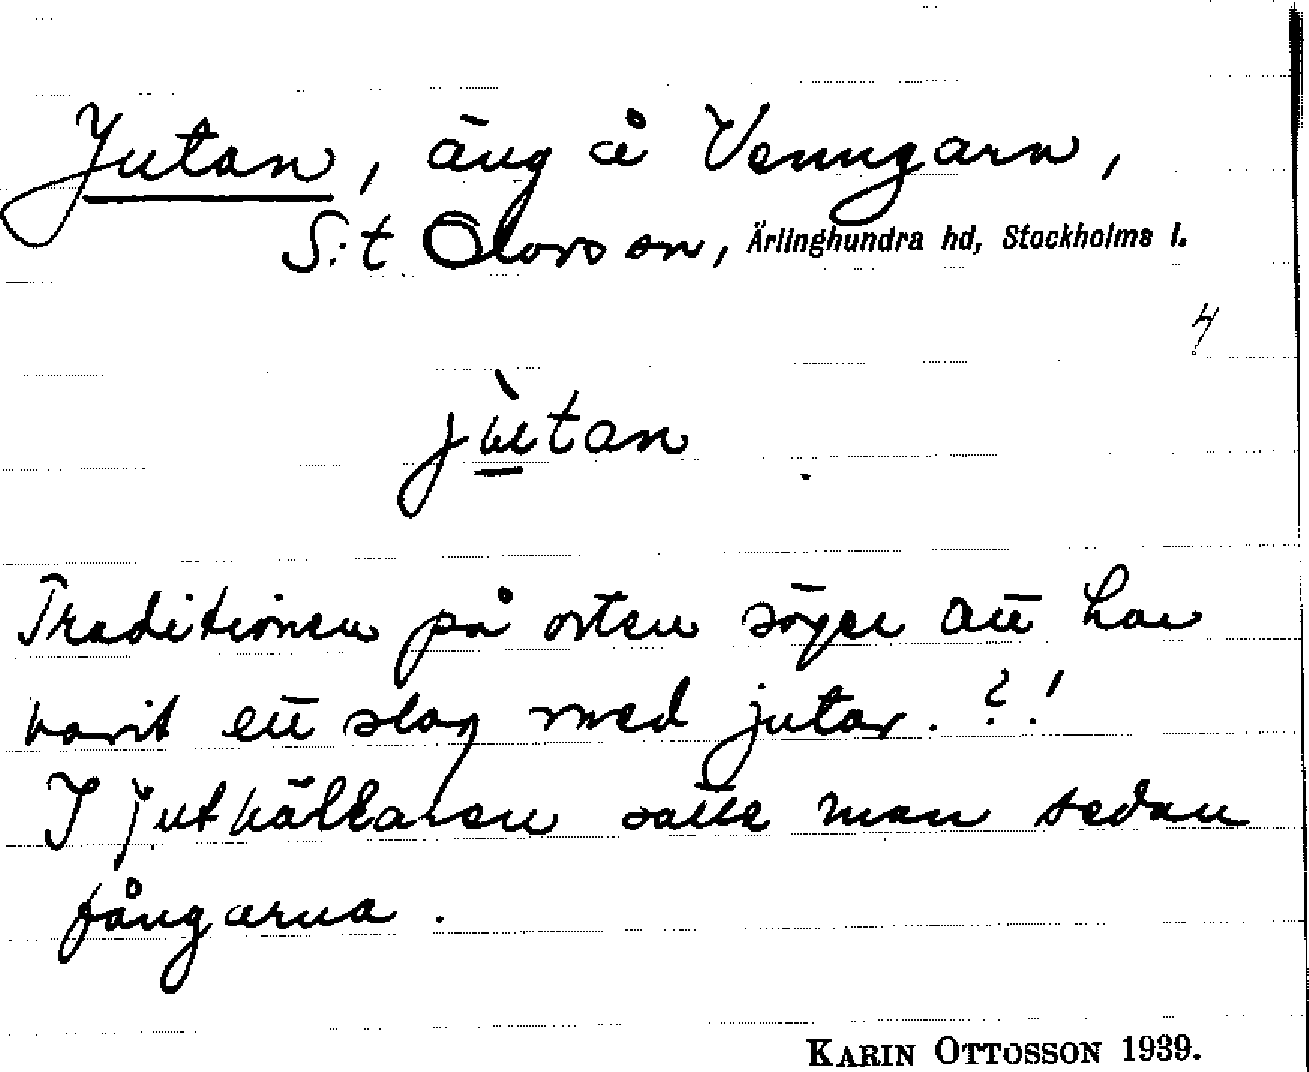 Jutan, äng å Venngarn,
S:t Olovs sn, Ärlinghundra hd, Stockholms l.
4
jùtan
Traditionen på orten säger att här
varit ett slag med jutar. ?!
I jutkällaren satte man sedan
fångarna.
KARIN OTTOSSON 1939.